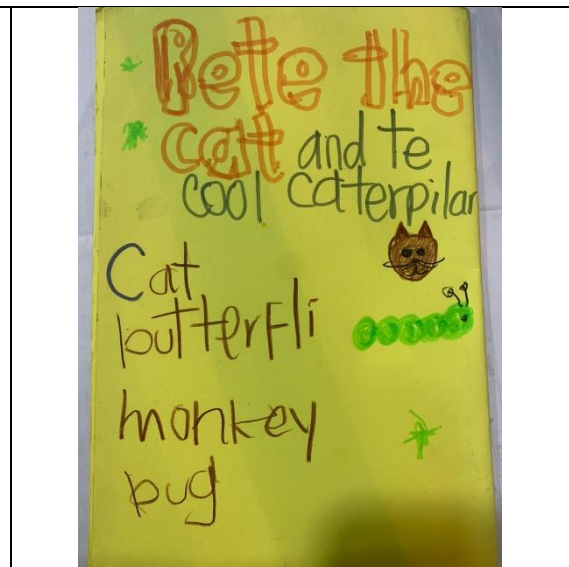 Pete the
cat and te
cool caterpilar
Cat
butterfli
monkey
bug